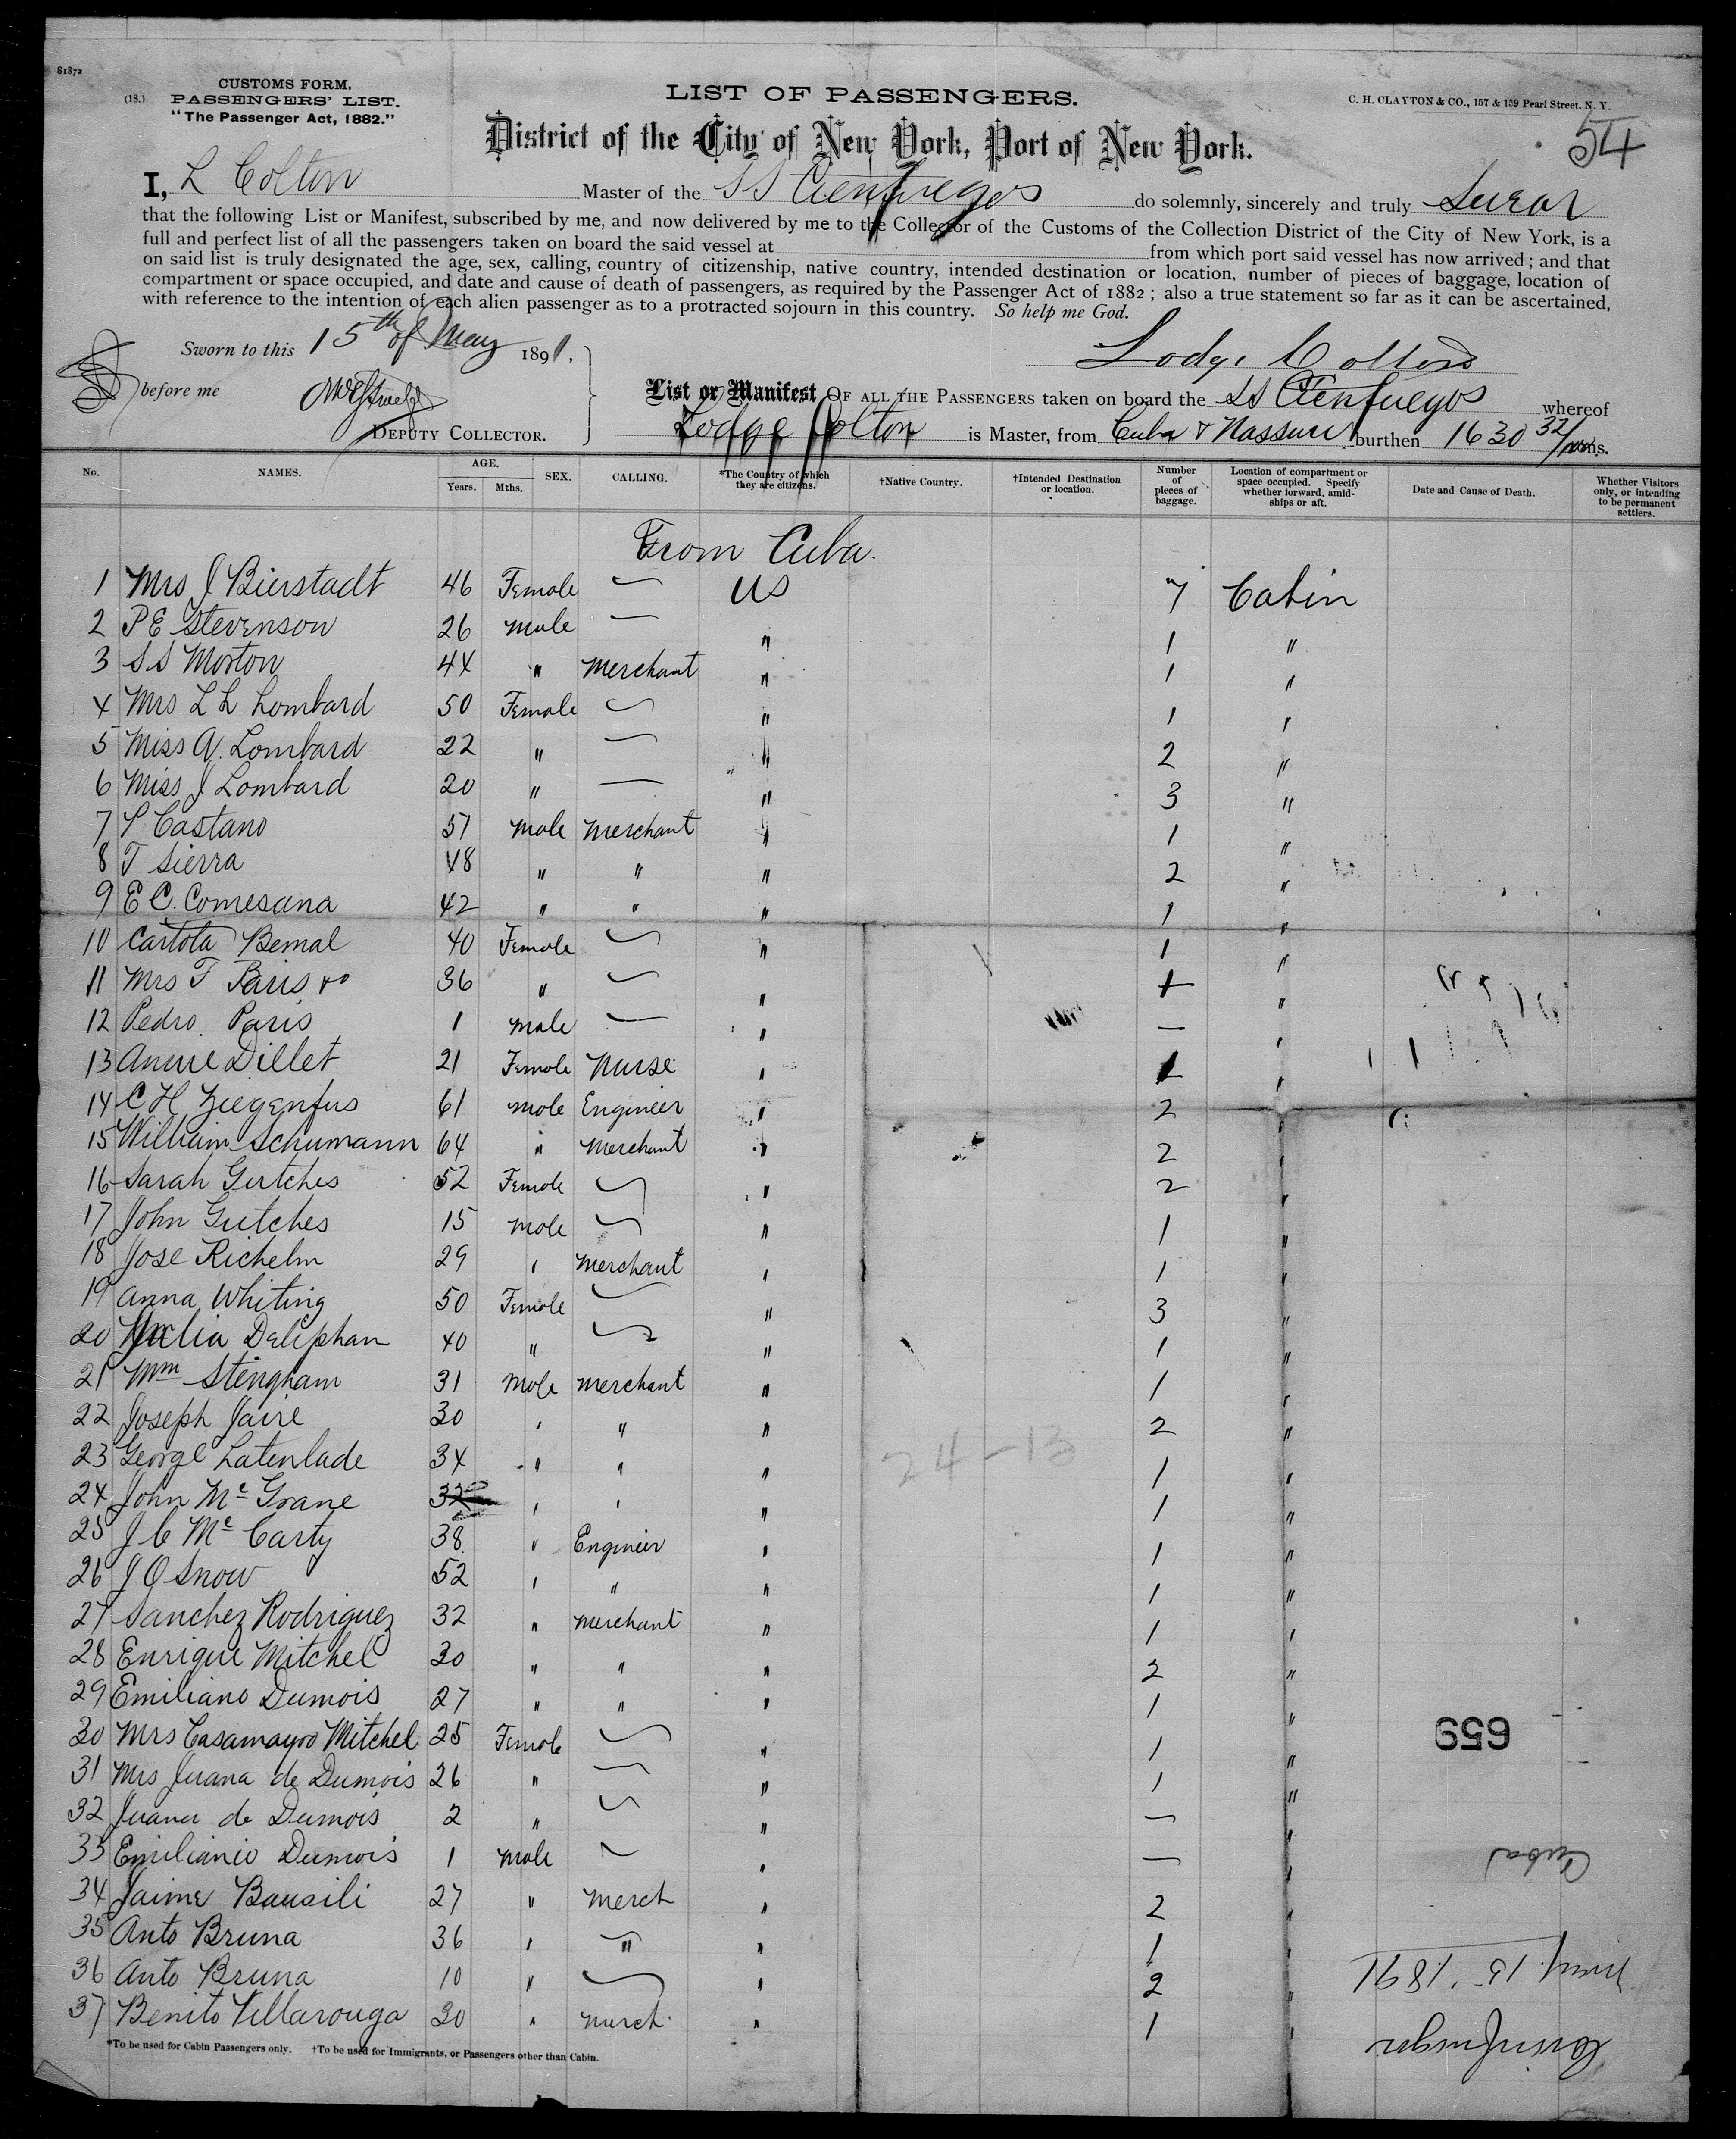 81872
CUSTOMS FORM.
(18.) PASSENGERS' LIST.
"The Passenger Act, 1882."
LIST OF PASSENGERS.
C. H. CLAYTON & CO., 157 & 159 Pearl Street, N. Y.
54
District of the City of New York, Port of New York.
I, L Colton Master of the SS Cienfuegos do solemnly, sincerely and truly Swear
that the following List or Manifest, subscribed by me, and now delivered by me to the Collector of the Customs of the Collection District of the City of New York, is a
full and perfect list of all the passengers taken on board the said vessel at from which port said vessel has now arrived; and that
on said list is truly designated the age, sex, calling, country of citizenship, native country, intended destination or location, number of pieces of baggage, location of
compartment or space occupied, and date and cause of death of passengers, as required by the Passenger Act of 1882; also a true statement so far as it can be ascertained,
with reference to the intention of each alien passenger as to a protracted sojourn in this country. So help me God.
Sworn to this 15th of May 1891.
Lodge Colton
before me
DEPUTY COLLECTOR.
List or Manifest OF ALL THE PASSENGERS taken on board the SS Cienfuegos whereof
Lodge Colton is Master, from Cuba & Nassau burthen 1630 32/100 tons.
No. NAMES. AGE. Years. Mths. SEX. CALLING. *The Country of which they are citizens. †Native Country. †Intended Destination or location. Number of pieces of baggage. Location of compartment or space occupied. Specify whether forward, amidships or aft. Date and Cause of Death. Whether Visitors only, or intending to be permanent settlers.
From Cuba.
1 Mrs J Bierstadt 46 Female — US 7 Cabin
2 P E Stevenson 26 Male — " 1 "
3 S S Morton 44 " Merchant " 1 "
4 Mrs L L Lombard 50 Female — " 1 "
5 Miss A. Lombard 22 " — " 2 "
6 Miss J Lombard 20 " — " 3 "
7 P Castano 57 Male Merchant " 1 "
8 T Sierra 48 " " " 2 "
9 E C. Comesana 42 " " " 1 "
10 Carlota Bernal 40 Female — " 1 "
11 Mrs T Paris 36 " — " 1 "
12 Pedro Paris 1 Male — " — "
13 Annie Dillet 21 Female Nurse " 1 "
14 C H Ziegenfus 61 Male Engineer " 2 "
15 William Schumann 64 " Merchant " 2 "
16 Sarah Gutches 52 Female — " 2 "
17 John Gutches 15 Male — " 1 "
18 Jose Richelm 29 " Merchant " 1 "
19 Anna Whiting 50 Female — " 3 "
20 Julia Deliphan 40 " — " 1 "
21 Wm Stengham 31 Male Merchant " 1 "
22 Joseph Jaire 30 " " " 2 "
23 George Latenlade 34 " " " 1 "
24–13
24 John Mc Grane 32 " " " 1 "
25 J C Mc Carty 38 " Engineer " 1 "
26 J O Snow 52 " " " 1 "
27 Sanchez Rodriguez 32 " Merchant " 1 "
28 Enrique Mitchel 30 " " " 2 "
29 Emiliano Dumois 27 " " " 1 "
30 Mrs Casamayor Mitchel 25 Female — " 1 "
659
31 Mrs Juana de Dumois 26 " — " 1 "
32 Juana de Dumois 2 " — " — "
33 Emilianio Dumois 1 Male — " — "
Cuba
34 Jaime Bausili 27 " Merch " 2 "
35 Anto Bruna 36 " " " 1 "
36 Anto Bruna 10 " — " 2 "
May 15 1891
37 Benito Villarouga 30 " Merch. " 1 "
Cienfuegos
*To be used for Cabin Passengers only. †To be used for Immigrants, or Passengers other than Cabin.